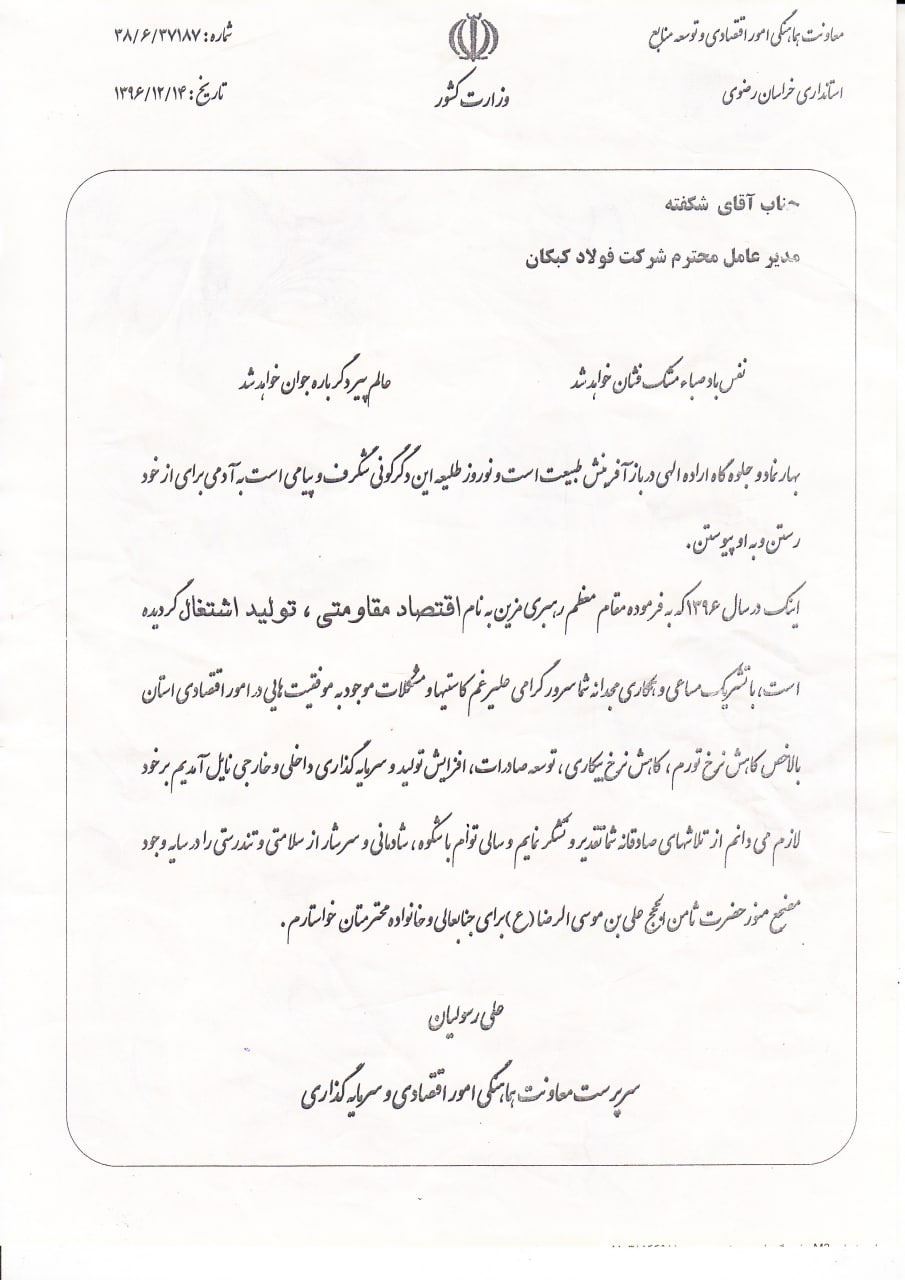 معاونت هماهنگی امور اقتصادی و توسعه منابع
استانداری خراسان رضوی
وزارت کشور
شماره: ۳۸/۶/۳۷۱۸۷
تاریخ: ۱۳۹۶/۱۲/۱۴
جناب آقای شگفته
مدیر عامل محترم شرکت فولاد کبکان
نفس باد صباء مشک فشان خواهد شد عالم پیر دگر باره جوان خواهد شد
بهار نماد و جلوه گاه اراده الهی در باز آفرینش طبیعت است و نوروز طلیعه این دگرگونی شگرف و پیامی است به آدمی برای از خود
رستن و به او پیوستن.
اینک در سال ۱۳۹۶ که به فرموده مقام معظم رهبری مزین به نام اقتصاد مقاومتی ، تولید اشتغال گردیده
است، با تشریک مساعی و همکاری مجدانه شما سرور گرامی علیرغم کاستیها و مشکلات موجود به موفقیت هایی در امور اقتصادی استان
بالاخص کاهش نرخ تورم ، کاهش نرخ بیکاری ، توسعه صادرات، افزایش تولید و سرمایه گذاری داخلی و خارجی نایل آمدیم بر خود
لازم می دانم از تلاشهای صادقانه شما تقدیر و تشکر نمایم و سالی توأم با شکوه ، شادمانی و سرشار از سلامتی و تندرستی را در سایه وجود
مضجع منور حضرت ثامن الحجج علی بن موسی الرضا (ع) برای جنابعالی و خانواده محترمتان خواستارم .
علی رسولیان
سرپرست معاونت هماهنگی امور اقتصادی و سرمایه گذاری